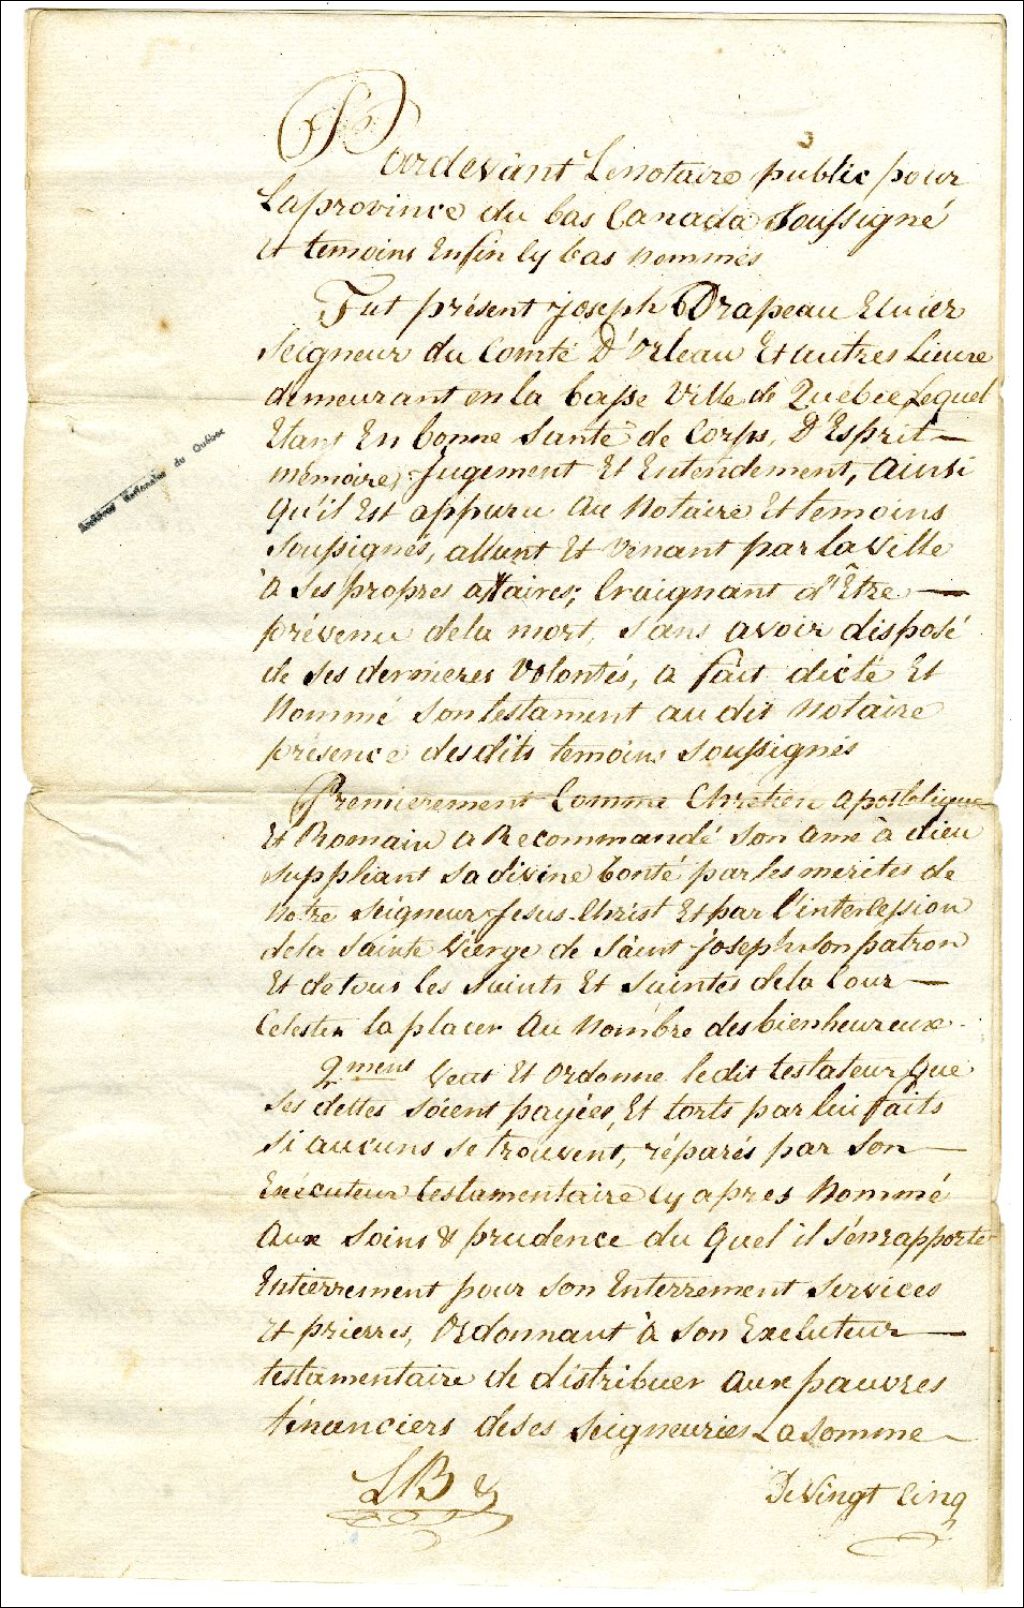 Pardevant Lenotaire public pour
Laprovince du bas Canada Soussigné
et temoins Enfin Cy bas nommés
Fut présent Joseph Drapeau Ecuier
Seigneur du Comté D'Orleau Et autres Lieux
demeurant en la basse Ville de Quebec Lequel
Etant En bonne Santé de Corps, D'Esprit —
mémoire, Jugement Et Entendement, Ainsi
Qu'il Est apparu Au Notaire Et temoins
Soussignés, allant Et venant par la Ville
à Ses propres affaires; Craignant d'Être —
prévenu dela mort, Sans avoir disposé
de Ses dernieres Volontés, a fait dicté Et
Nommé Son testament au dit Notaire
présence desdits temoins Soussignés
Premierement Comme Chretien apostolique
Et Romain a Recommandé Son Ame à dieu
Suppliant Sa divine bonté par les merites de
Notre Seigneur Jesus-Christ Et par l'intercession
dela Sainte Vierge de Saint Joseph Son patron
Et de tous les Saints Et Saintes dela Cour —
Celeste la placer Au Nombre des bienheureux.
2ment Veut Et Ordonne ledit testateur Que
Ses dettes Soient payées, Et torts par lui faits
Si aucuns Se trouvent, réparés par Son —
Exécuteur testamentaire Cy apres Nommé
Aux Soins & prudence du Quel il S'en rapporte
Entierrement pour Son Enterrement Services
Et prierres, Ordonnant à Son Executeur —
testamentaire de distribuer Aux pauvres
ténanciers de Ses Seigneuries La Somme —
LB
De Vingt Cinq
Archives Nationales du Québec